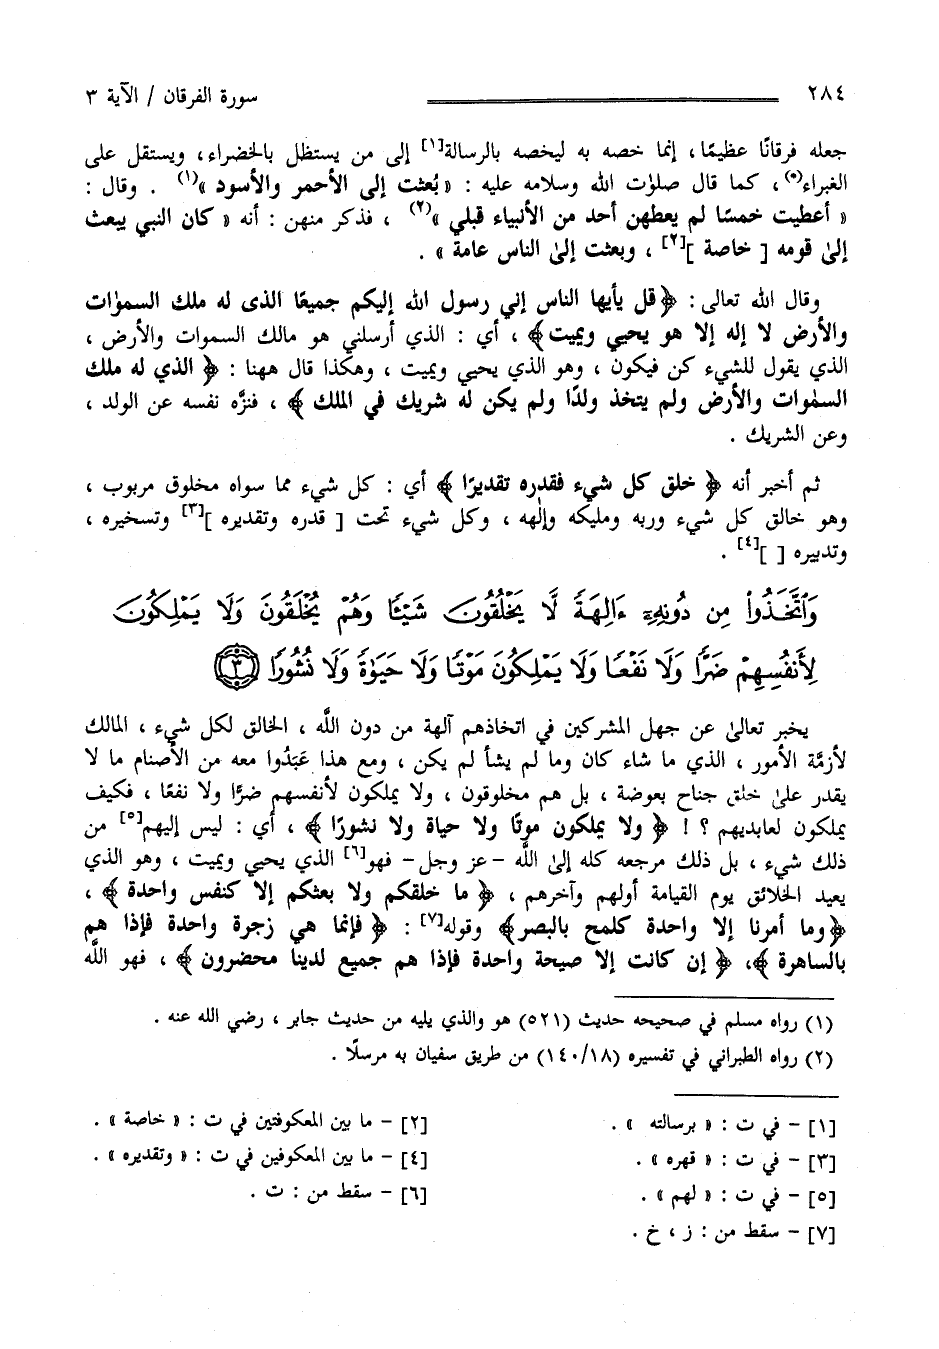 ٢٨٤ سورة الفرقان / الآية ٣
جعله فرقانًا عظيمًا، إنما خصه به ليخصه بالرسالة[١] إلى من يستظل بالخضراء، ويستقل على
الغبراء(*)، كما قال صلوٰت الله وسلامه عليه : « بُعثت إلى الأحمر والأسود »(١) . وقال :
« أعطيت خمسًا لم يعطهن أحد من الأنبياء قبلي »(٢) ، فذكر منهن : أنه « كان النبي يبعث
إلىٰ قومه [ خاصة ][٢] ، وبعثت إلىٰ الناس عامة » .
وقال الله تعالى : ﴿ قل يأيها الناس إني رسول الله إليكم جميعًا الذى له ملك السموٰات
والأرض لا إله إلا هو يحيي ويميت ﴾ ، أي : الذي أرسلني هو مالك السموات والأرض ،
الذي يقول للشيء كن فيكون ، وهو الذي يحيي ويميت ، وهكذا قال ههنا : ﴿ الذي له ملك
السمٰوات والأرض ولم يتخذ ولدًا ولم يكن له شريك في الملك ﴾ ، فنزَّه نفسه عن الولد ،
وعن الشريك .
ثم أخبر أنه ﴿ خلق كل شيء فقدره تقديرًا ﴾ أي : كل شيء مما سواه مخلوق مربوب ،
وهو خالق كل شيء وربه ومليكه وإلٰهه ، وكل شيء تحت [ قدره وتقديره ][٣] وتسخيره ،
وتدبيره [ ][٤] .
وَٱتَّخَذُوا۟ مِن دُونِهِۦٓ ءَالِهَةً لَّا يَخْلُقُونَ شَيْـًٔا وَهُمْ يُخْلَقُونَ وَلَا يَمْلِكُونَ
لِأَنفُسِهِمْ ضَرًّا وَلَا نَفْعًا وَلَا يَمْلِكُونَ مَوْتًا وَلَا حَيَوٰةً وَلَا نُشُورًا ٣
يخبر تعالىٰ عن جهل المشركين في اتخاذهم آلهة من دون اللَّه ، الخالق لكل شيء ، المالك
لأزمَّة الأمور ، الذي ما شاء كان وما لم يشأ لم يكن ، ومع هذا عَبَدُوا معه من الأصنام ما لا
يقدر علىٰ خلق جناح بعوضة ، بل هم مخلوقون ، ولا يملكون لأنفسهم ضرًّا ولا نفعًا ، فكيف
يملكون لعابديهم ؟ ! ﴿ ولا يملكون موتًا ولا حياة ولا نشورًا ﴾ ، أي : ليس إليهم[٥] من
ذلك شيء ، بل ذلك مرجعه كله إلىٰ اللَّه –عز وجل– فهو[٦] الذي يحيي ويميت ، وهو الذي
يعيد الخلائق يوم القيامة أولهم وآخرهم ، ﴿ ما خلقكم ولا بعثكم إلا كنفس واحدة ﴾ ،
﴿ وما أمرنا إلا واحدة كلمح بالبصر ﴾ وقوله[٧] : ﴿ فإنما هي زجرة واحدة فإذا هم
بالساهرة ﴾، ﴿ إن كانت إلا صيحة واحدة فإذا هم جميع لدينا محضرون ﴾ ، فهو اللَّه
(١) رواه مسلم في صحيحه حديث (٥٢١) هو والذي يليه من حديث جابر ، رضي الله عنه .
(٢) رواه الطبراني في تفسيره (١٤٠/١٨) من طريق سفيان به مرسلًا .
[١] – في ت : « برسالته » . [٢] – ما بين المعكوفتين في ت : « خاصة » .
[٣] – في ت : « قهره » . [٤] – ما بين المعكوفين في ت : « وتقديره » .
[٥] – في ت : « لهم » . [٦] – سقط من : ت .
[٧] – سقط من : ز ، خ .